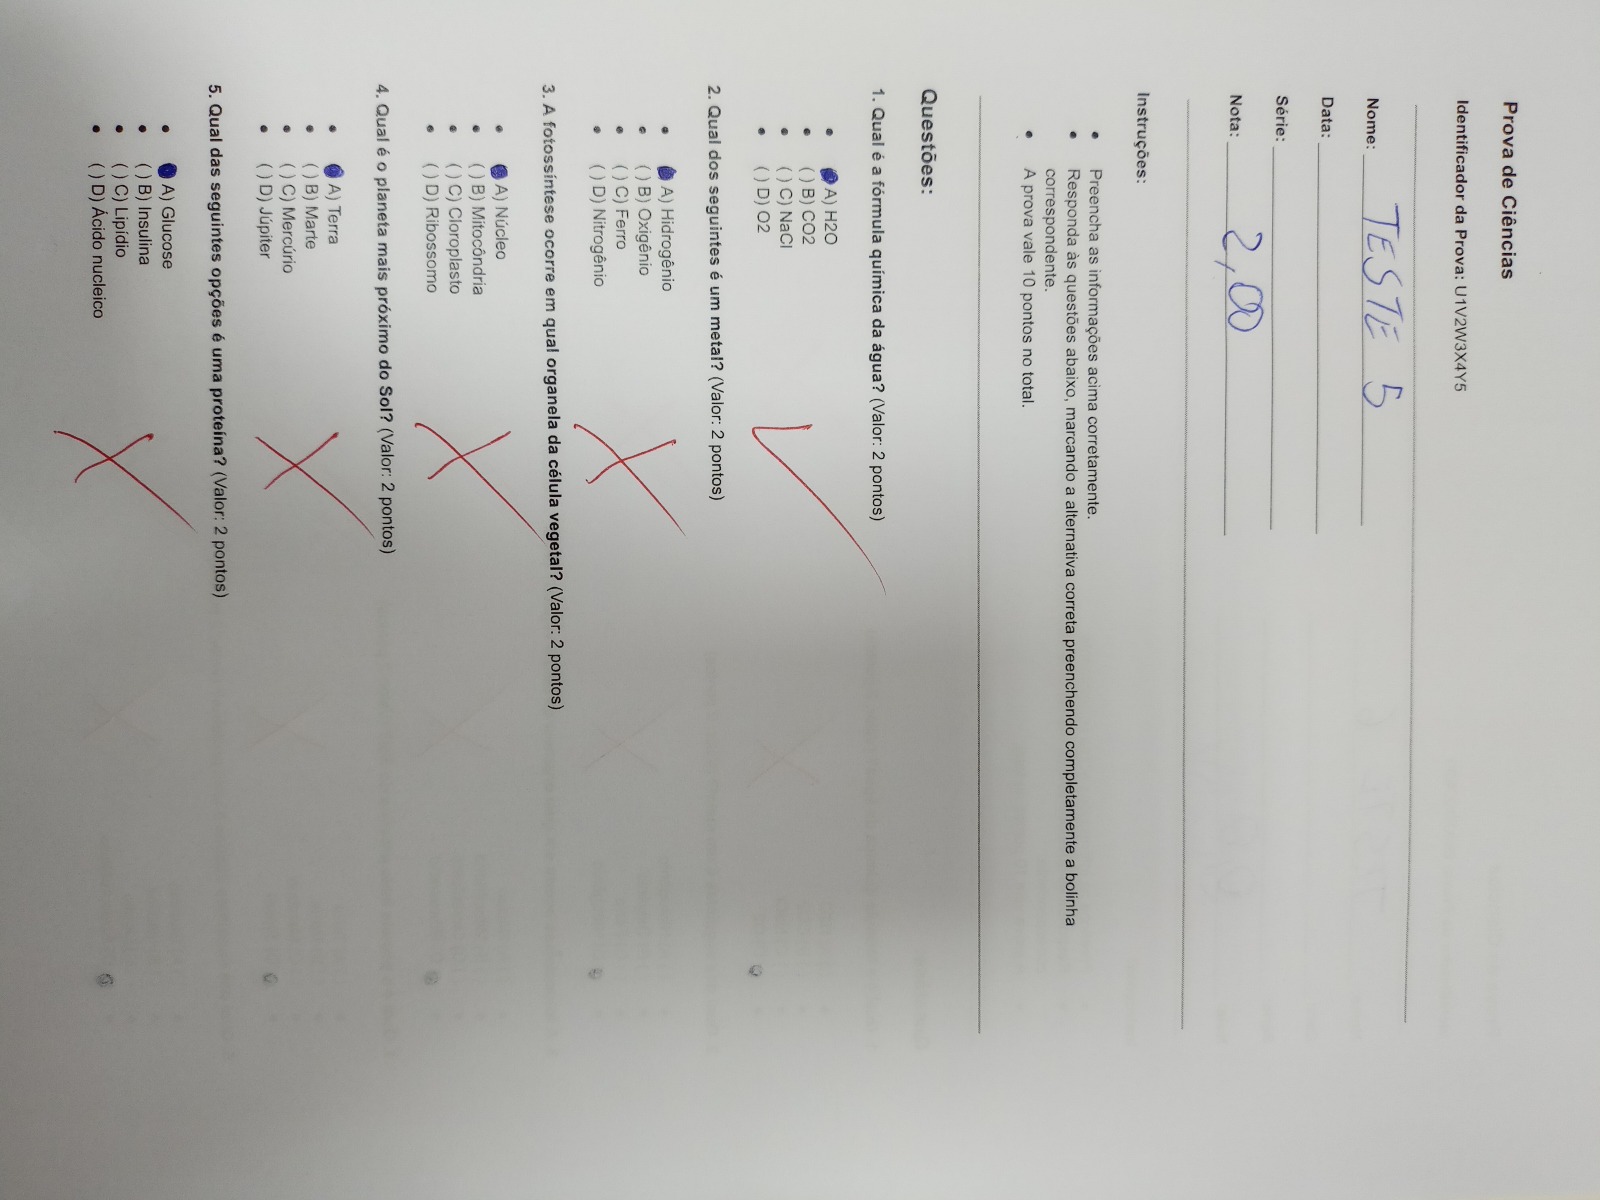 Prova de Ciências
Identificador da Prova: U1V2W3X4Y5
Nome: TESTE 5
Data:
Série:
Nota: 2,00
Instruções:
• Preencha as informações acima corretamente.
• Responda às questões abaixo, marcando a alternativa correta preenchendo completamente a bolinha
correspondente.
• A prova vale 10 pontos no total.
Questões:
1. Qual é a fórmula química da água? (Valor: 2 pontos)
• A) H2O
• ( ) B) CO2
• ( ) C) NaCl
• ( ) D) O2
2. Qual dos seguintes é um metal? (Valor: 2 pontos)
• A) Hidrogênio
• ( ) B) Oxigênio
• ( ) C) Ferro
• ( ) D) Nitrogênio
3. A fotossíntese ocorre em qual organela da célula vegetal? (Valor: 2 pontos)
• A) Núcleo
• ( ) B) Mitocôndria
• ( ) C) Cloroplasto
• ( ) D) Ribossomo
4. Qual é o planeta mais próximo do Sol? (Valor: 2 pontos)
• A) Terra
• ( ) B) Marte
• ( ) C) Mercúrio
• ( ) D) Júpiter
5. Qual das seguintes opções é uma proteína? (Valor: 2 pontos)
• A) Glucose
• ( ) B) Insulina
• ( ) C) Lipídio
• ( ) D) Ácido nucleico